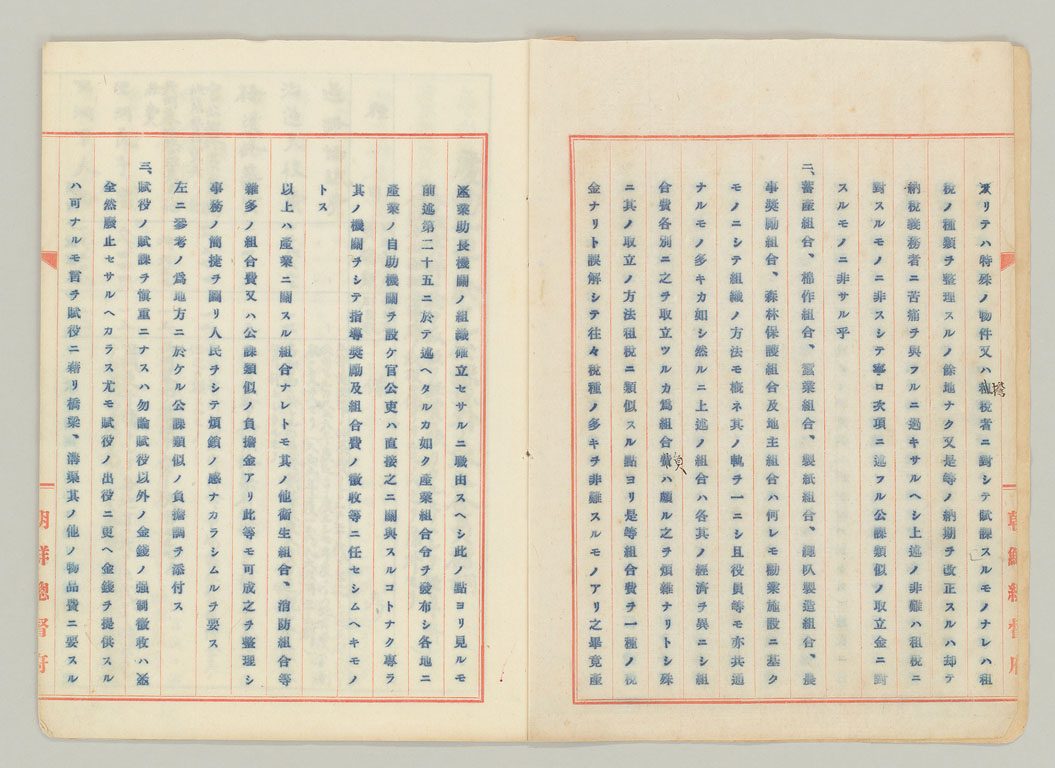 至リテハ特殊ノ物件又ハ執税者ニ對シテ賦課スルモノナレハ租
税ノ種類ヲ整理スルノ餘地ナク又是等ノ納期ヲ改正スルハ却テ
納税義務者ニ苦痛ヲ與フルニ過キサルヘシ上述ノ非難ハ租税ニ
對スルモノニ非スシテ寧ロ次項ニ述フル公課類似ノ取立金ニ對
スルモノニ非サル乎
二、蓄産組合、棉作組合、蠶業組合、製紙組合、繩叺製造組合、農
事奬勵組合、森林保護組合及地主組合ハ何レモ勸業施設ニ基ク
モノニシテ組織ノ方法モ概ネ其ノ軌ヲ一ニシ且役員等モ亦共通
ナルモノ多キカ如シ然ルニ上述ノ組合ハ各其ノ經濟ヲ異ニシ組
合費各別ニ之ヲ取立ツルカ爲組合員ハ頗ル之ヲ煩雜ナリトシ殊
ニ其ノ取立ノ方法租税ニ類似スル點ヨリ是等組合費ヲ一種ノ税
金ナリト誤解シテ往々税種ノ多キヲ非難スルモノアリ之畢竟産
朝鮮總督府
業助長機關ノ組織確立セサルニ職由スヘシ此ノ點ヨリ見ルモ
前述第二十五ニ於テ述ヘタルカ如ク産業組合令ヲ發布シ各地ニ
産業ノ自助機關ヲ設ケ官公吏ハ直接之ニ關與スルコトナク專ラ
其ノ機關ヲシテ指導奬勵及組合費ノ徴收等ニ任セシムヘキモノ
トス
以上ハ産業ニ關スル組合ナレトモ其ノ他衞生組合、消防組合等
雜多ノ組合費又ハ公課類似ノ負擔金アリ此等モ可成之ヲ整理シ
事務ノ簡捷ヲ圖リ人民ヲシテ煩鎖ノ感ナカラシムルヲ要ス
左ニ參考ノ爲地方ニ於ケル公課類似ノ負擔調ヲ添付ス
三、賦役ノ賦課ヲ愼重ニナスハ勿論賦役以外ノ金錢ノ強制徴收ハ
全然廢止セサルヘカラス尤モ賦役ノ出役ニ更ヘ金錢ヲ提供スル
ハ可ナルモ盲ヲ賦役ニ藉リ橋梁、溝渠其ノ他ノ物品費ニ要スル
朝鮮總督府